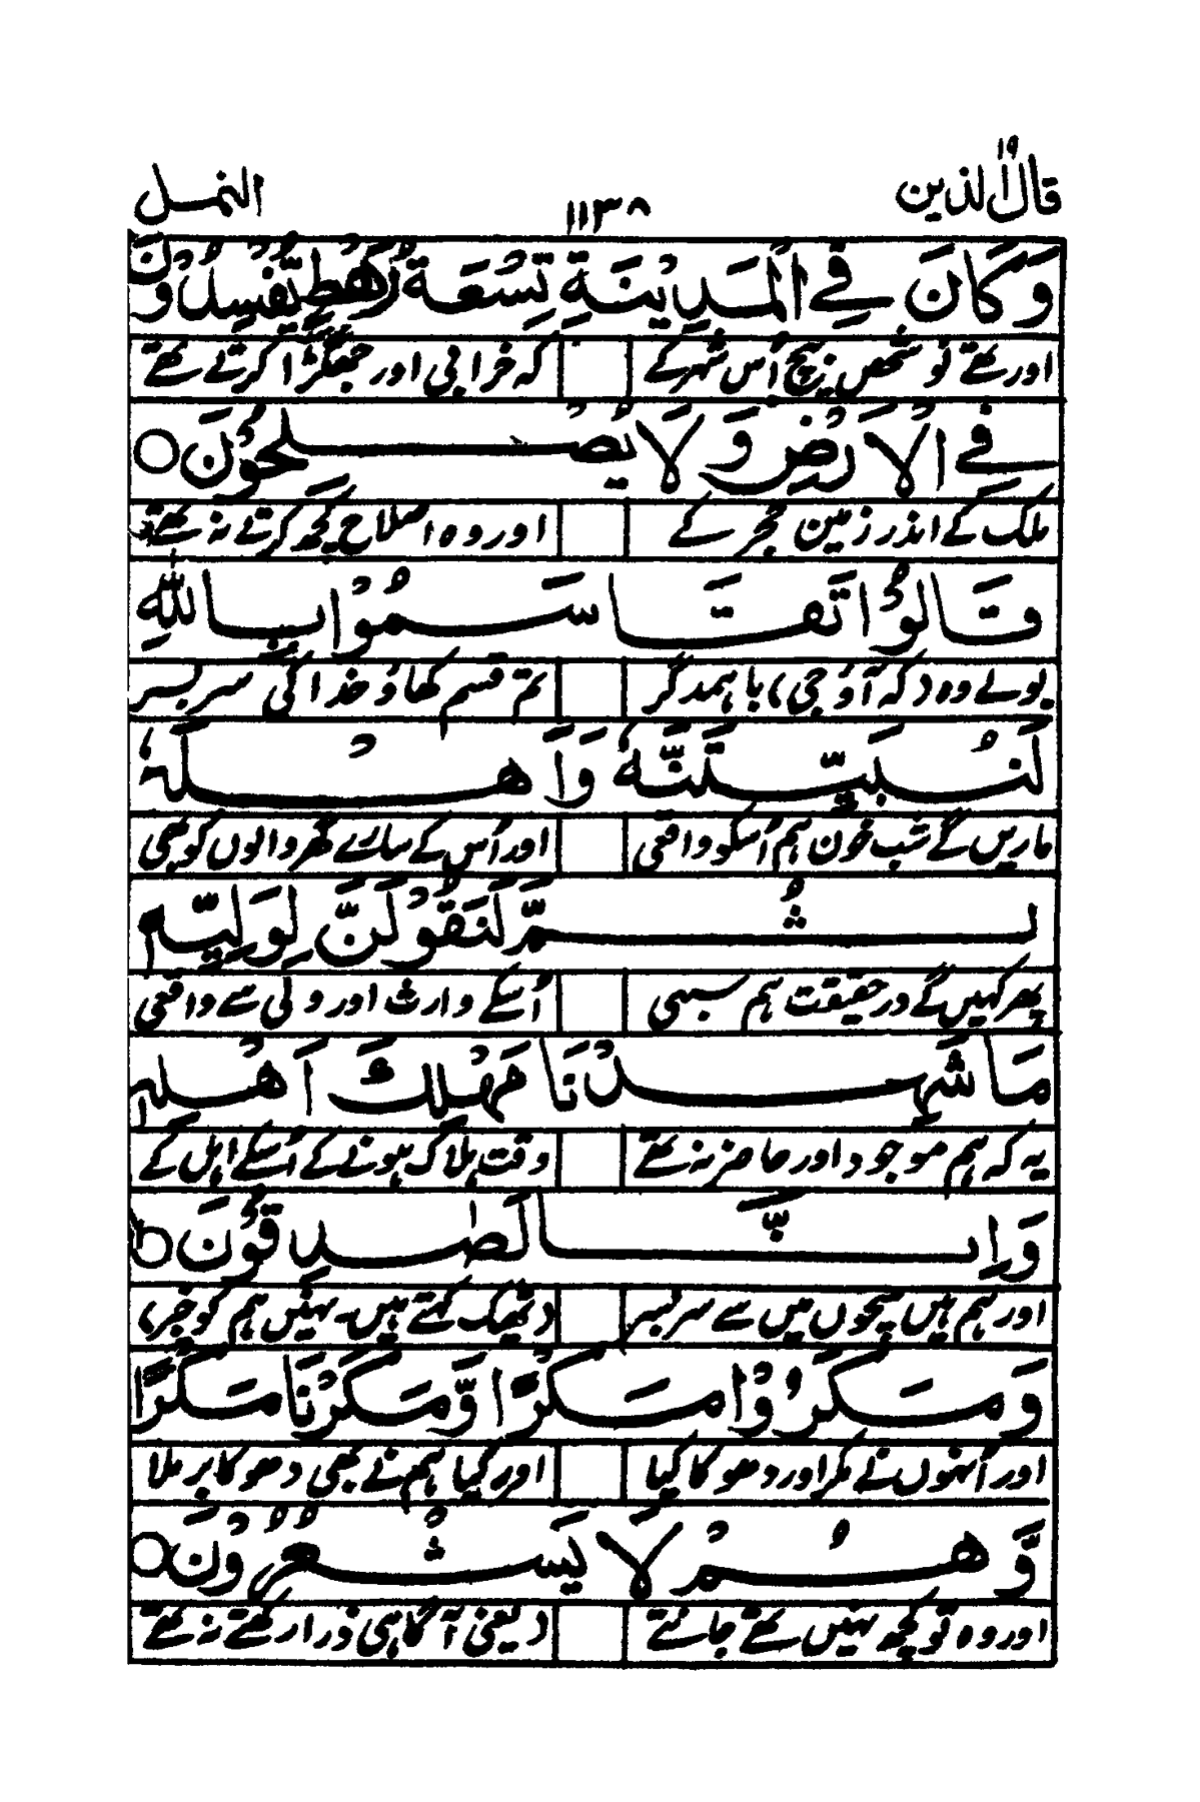 قال الذین ۱۹
۱۱۳۸
النمل
وَكَانَ فِي الْمَدِيْنَةِ تِسْعَةُ رَهْطٍ يُّفْسِدُوْنَ
اور تھے نو شخص بیچ اُس شہر کے کہ خرابی اور جھگڑا کرتے تھے
فِي الْاَرْضِ وَلَا يُصْلِحُوْنَ ○
ملک کے اندر زمین حجر کے اور وہ اصلاح کچھ کرتے نہ تھے
قَالُوْا تَقَاسَمُوْا بِاللّٰهِ
بولے وہ (کہ آؤ جی) باہمدگر تم قسم کھاؤ خدا کی سر بسر
لَنُبَيِّتَنَّهٗ وَاَهْلَهٗ
ماریں گے شب خون ہم اُسکو واقعی اور اُس کے سارے گھر والوں کو بھی
ثُمَّ لَنَقُوْلَنَّ لِوَلِيِّهٖ
پھر کہیں گے در حقیقت ہم سبھی اُسکے وارث اور ولی سے واقعی
مَا شَهِدْنَا مَهْلِكَ اَهْلِهٖ
یہ کہ ہم موجود اور حاضر نہ تھے وقت ہلاک ہونے کے اُسکے اہل کے
وَاِنَّا لَصٰدِقُوْنَ ○
اور ہم ہیں سچوں میں سے سر بسر (ٹھیک کہتے ہیں۔ نہیں ہم کو خبر)
وَمَكَرُوْا مَكْرًا وَّمَكَرْنَا مَكْرًا
اور اُنہوں نے مکر اور دھوکا کیا اور کیا ہم نے بھی دھوکا بر ملا
وَّهُمْ لَا يَشْعُرُوْنَ ○
اور وہ تو کچھ نہیں تھے جانتے (یعنی آگاہی ذرا رکھتے نہ تھے